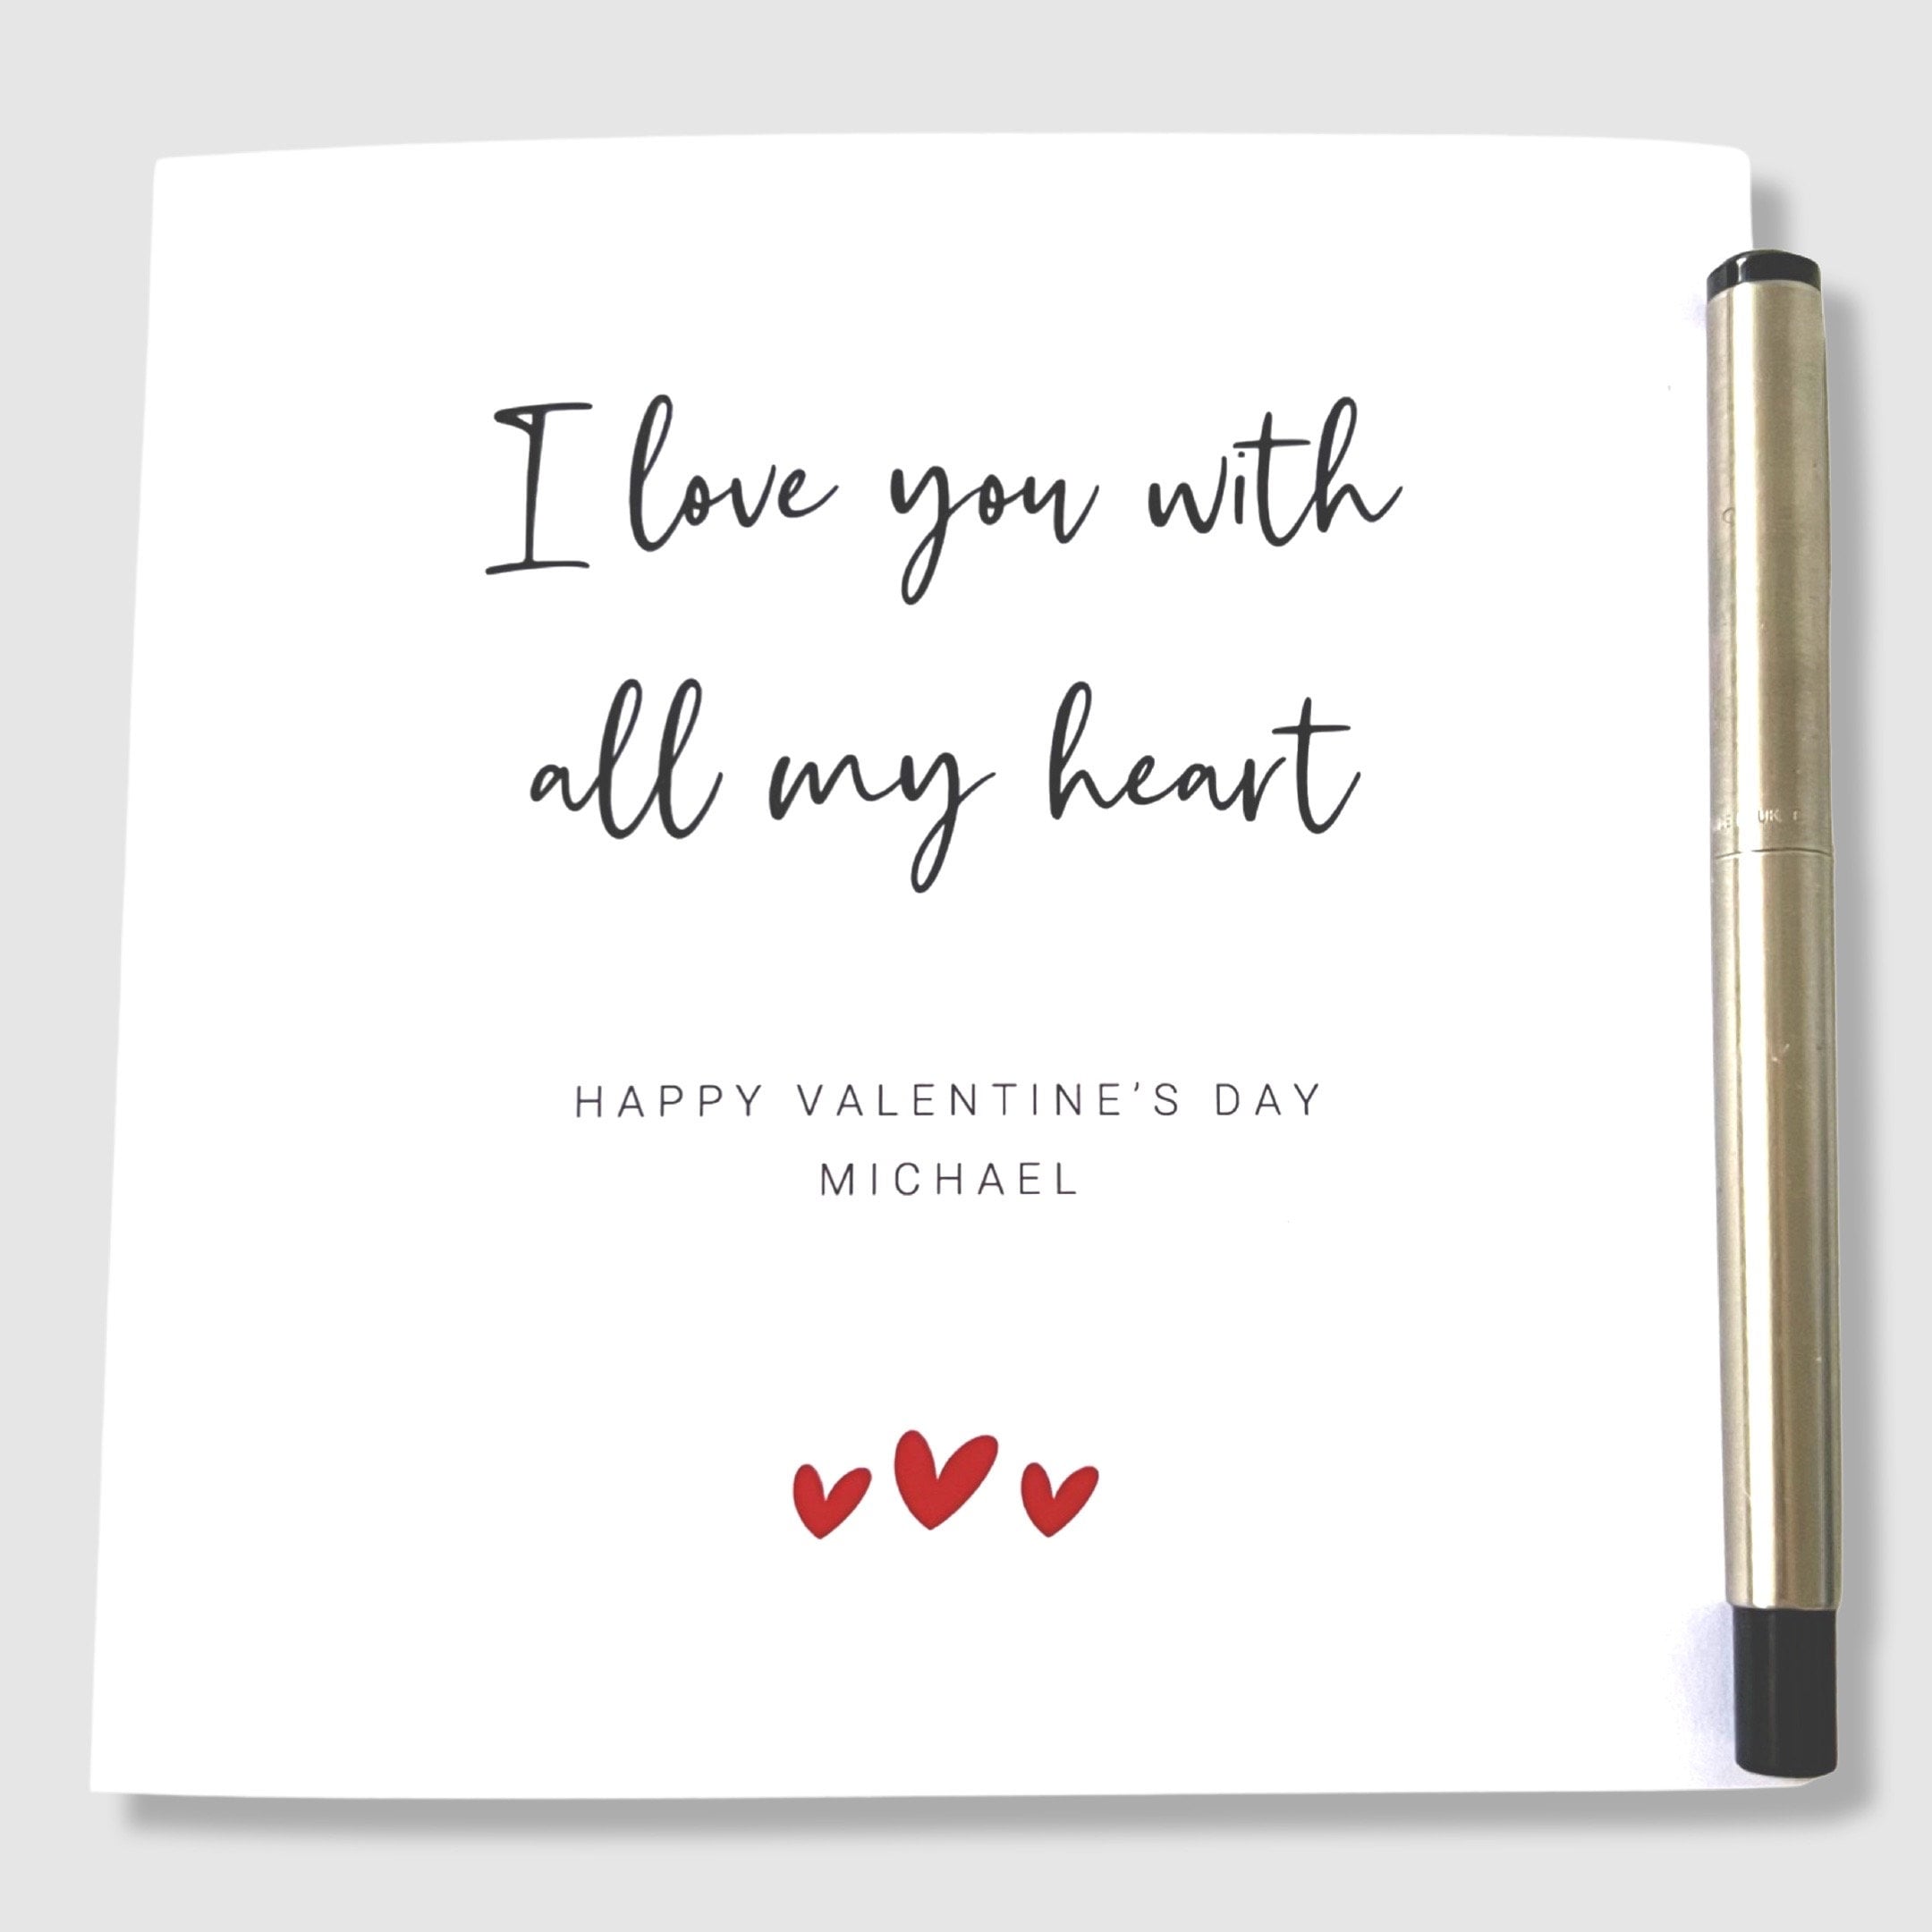 I love you with
all my heart
HAPPY VALENTINE'S DAY
MICHAEL